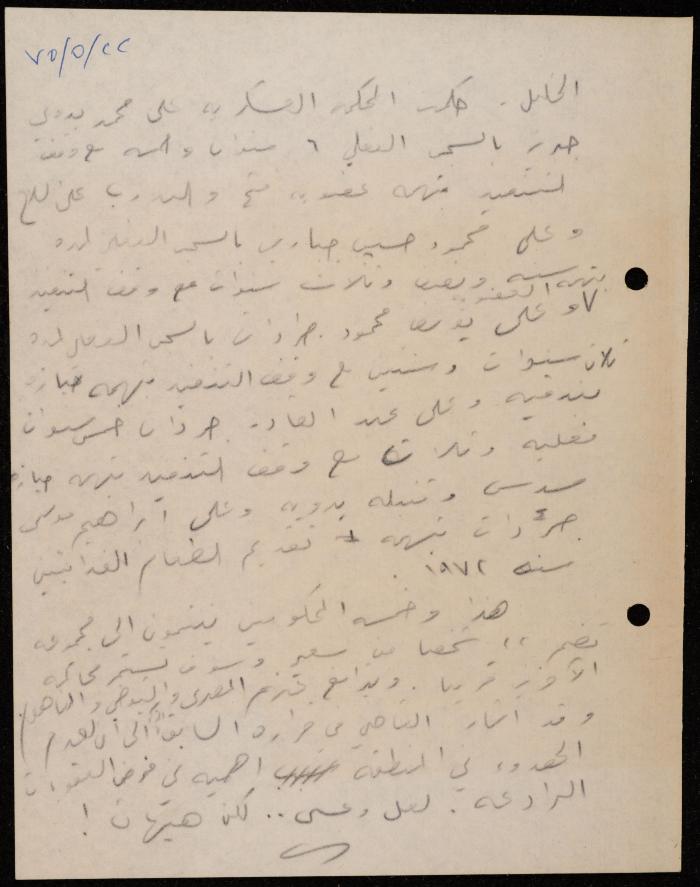 ٧٥/٥/٢٢
الخليل . حكمت المحكمة العسكرية على محمد بدوي
جردات بالسجن الفعلي ٦ سنوات وخمسة مع وقف
التنفيذ بتهمة عضوية فتح والتدرب على السلاح
وعلى محمود حسين جبارين بالسجن الفعلي لمدة
سنة ونصف وثلاث سنوات مع وقف التنفيذ
بتهمة العضوية
وعلى يوسف محمود جرادات بالسجن الفعلي لمدة
ثلاث سنوات وسنتين مع وقف التنفيذ بتهمة حيازة
بندقية وعلى عبد القادر جردات خمس سنوات
فعلية وثلاث مع وقف التنفيذ بتهمة حيازة
مسدس وقنبلة يدوية وعلى ابراهيم موسى
جرادات بتهمة تقديم الطعام الفدائيين
سنة ١٩٧٢ .
هذا وخمسة المحكومين ينتمون الى مجموعة
تضم ١١ شخصا من سعير وسوف تستمر محاكمة
الآخرين قريبا .
وقد اشار القاضي في قراره السابق الى ان لعدم
الهدوء في المنطقة اهمية في فرض العقوبات
الرادعة . لعل وعسى .. لكن هيهات !